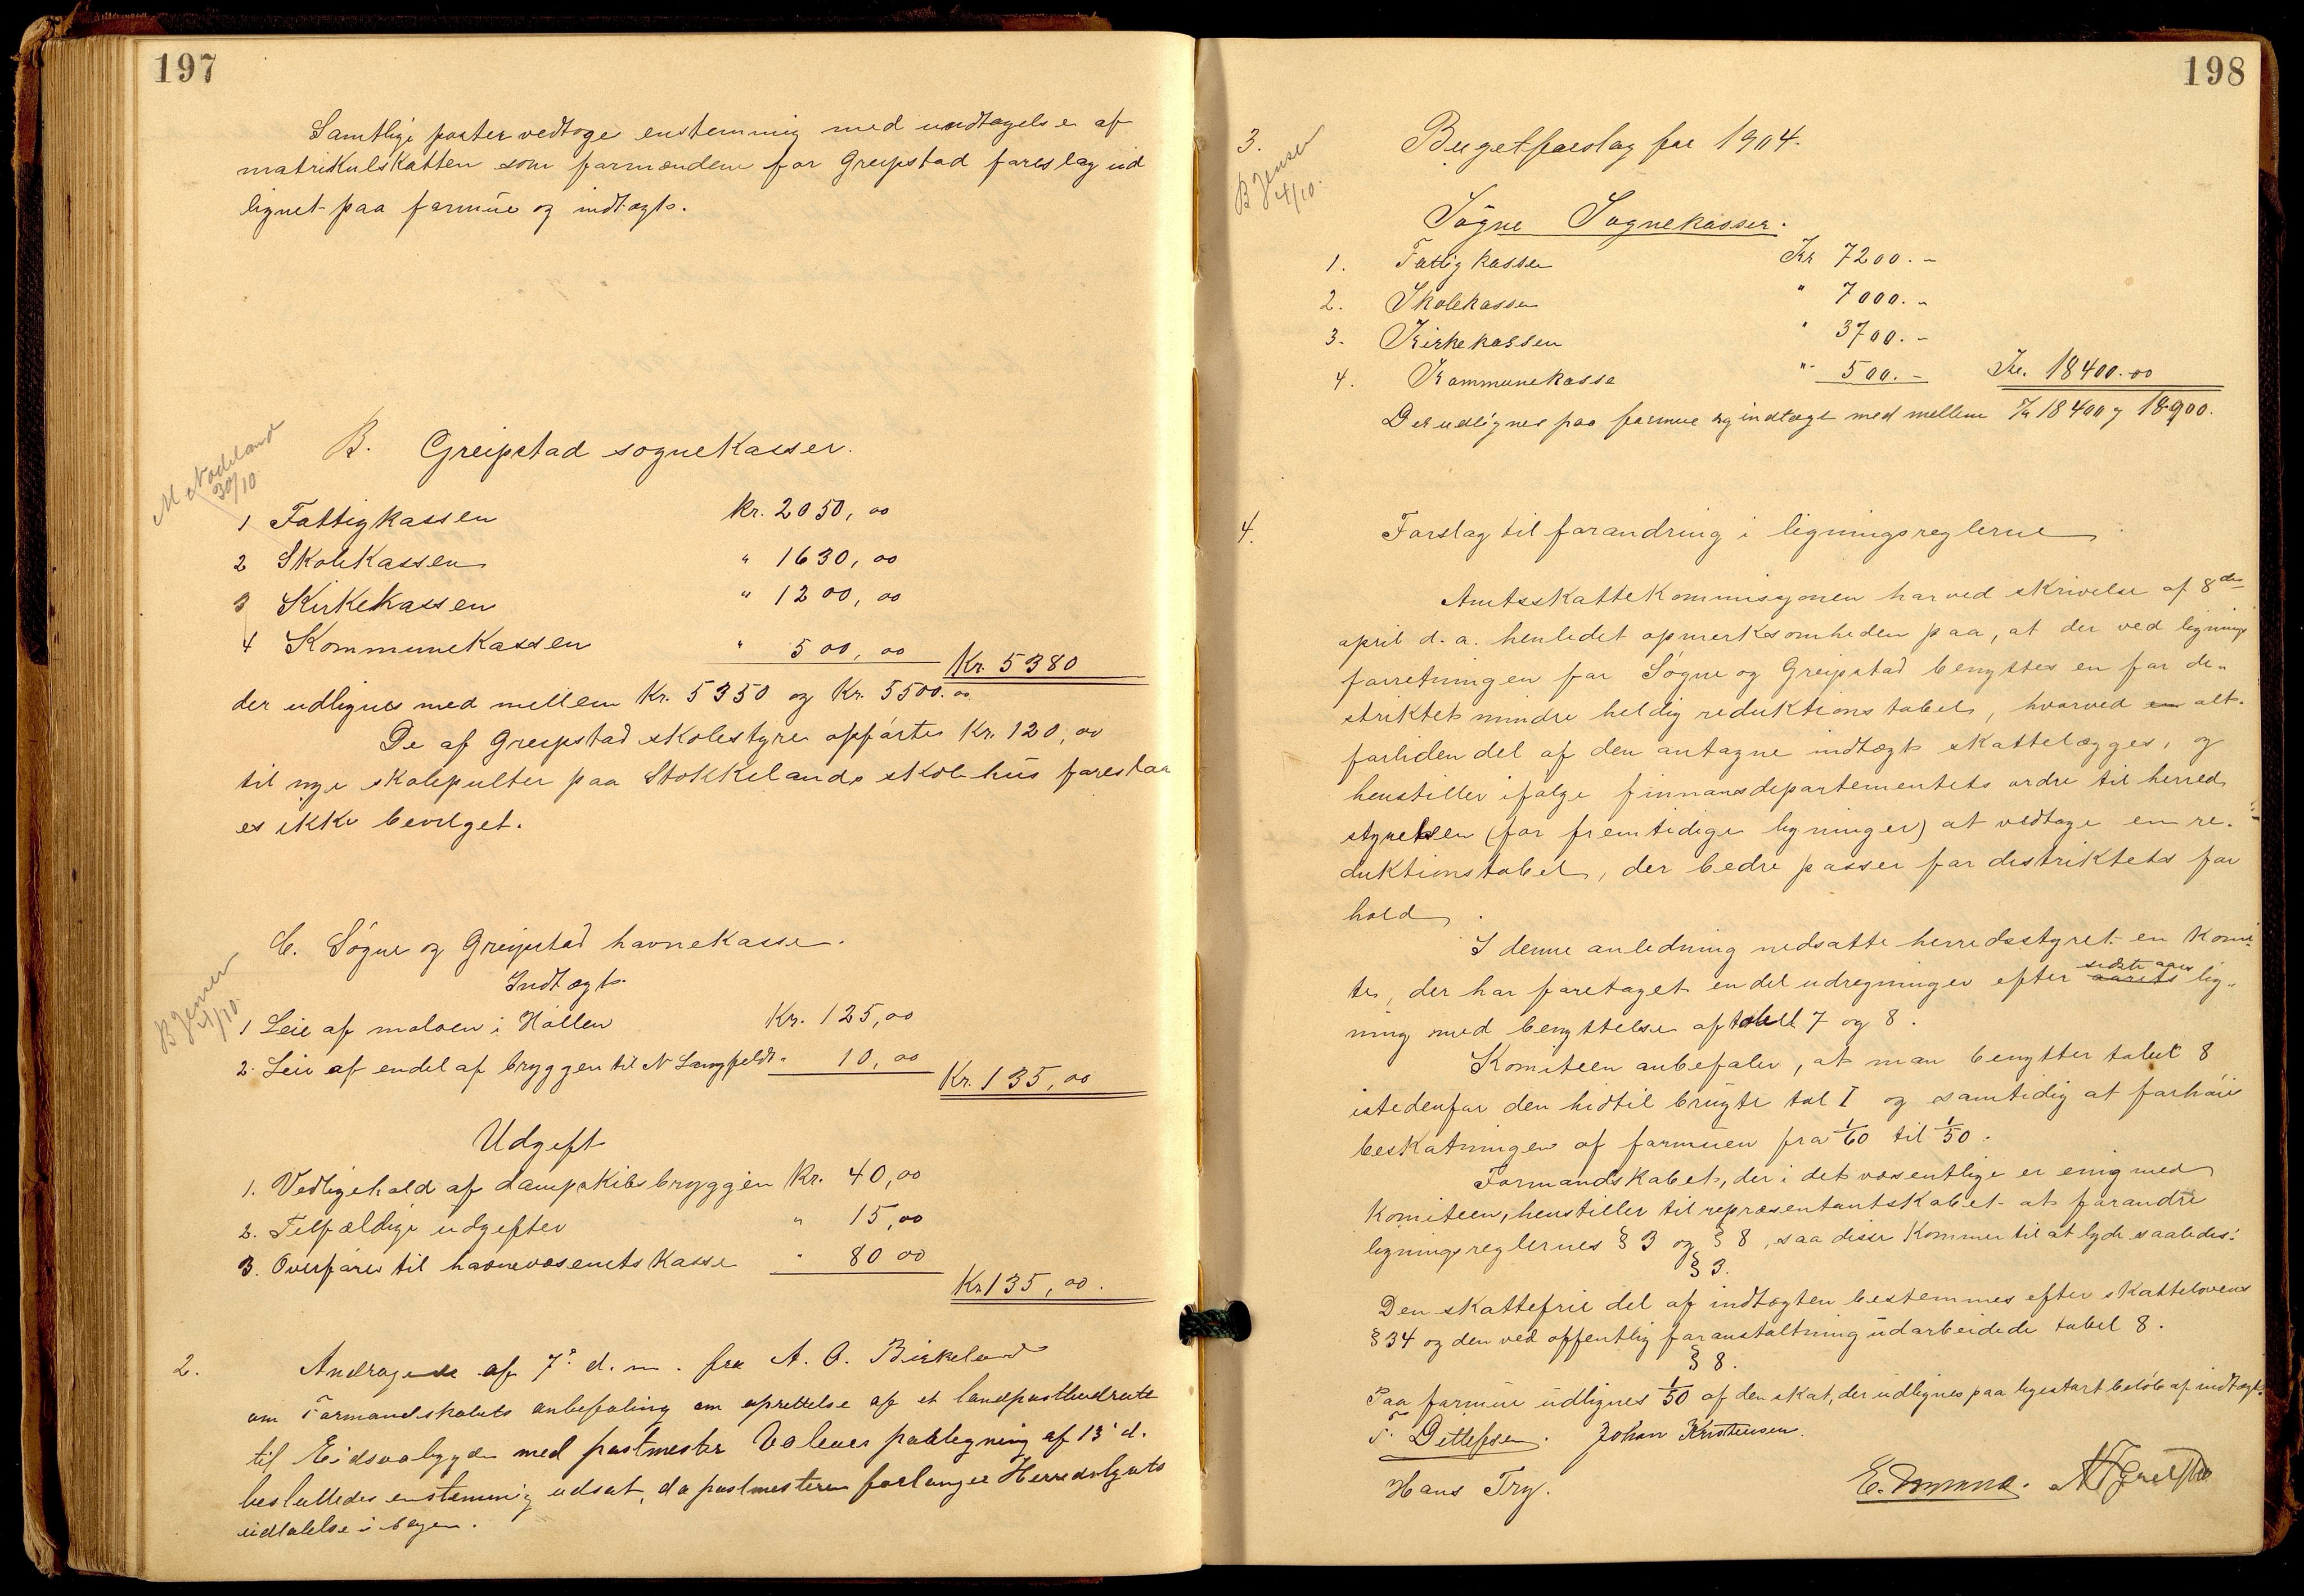 197
Samtlige poster vedtoges enstemmig med undtagelse af
matrikulskatten som formændene for Greipstad foreslag ud
lignet paa formue og indtægt.
M Nodeland
30/10
B. Greipstad sognekasser.
1 Fattigkassen kr. 2050,00
2 Skolekassen " 1630,00
3 Kirkekassen " 1200,00
4 Kommunekassen " 500,00 Kr. 5380
der udlignes med mellem Kr. 5350 og Kr. 5500.00
De af Greipstad skolestyre opførte Kr. 120,00
til nye skolepulter paa Stokkelands skolehus foreslaa
es ikke bevilget.
B Jensen
4/10.
C. Søgne og Greipstad havnekasse.
Indtægt.
1 Leie af moloen i Høllen Kr. 125,00
2. Leie af endel af bryggen til N Langfeldt " 10,00 Kr. 135,00
Udgift
1. Vedligehold af dampskibsbryggen Kr. 40,00
2. Tilfældige udgifter " 15,00
3. Overføres til havnevæsenets kasse " 80 00
Kr 135,00.
2. Andragende af 7de d. m. fra A. O. Birkeland
om Formandskabets anbefaling om oprettelse af et landpostbudrute
til Eidsaabygden med postmester Valeurs paategning af 13' d.
besluttedes enstemmig udsat, da postmesteren forlanger Herredstyrets
udtalelse i sagen.
198
3. Bugetforslag for 1904.
B Jensen
4/10.
Søgne Sognekasser.
1. Fattigkassen Kr 7200.-
2. Skolekassen " 7000.-
3. Kirkekassen " 3700.-
4. Kommunekasse " 500.- Kr. 18400.00
Der udlignes paa formue og indtægt med mellem Kr 18400 og 18900.
4. Forslag til forandring i ligningsreglerne.
Amtsskattekommisjonen har ved skrivelse af 8de
april d. a. henledet opmerksomheden paa, at der ved lignings
forretningen for Søgne og Greipstad benyttes en for di-
striktet mindre heldig reduktions tabel, hvorved en alt-
forliden del af den antagne indtægt skattelægges, og
henstiller ifølge finnansdepartementets ordre til herred
styrelsen (for fremtidige ligninger) at vedtage en re-
duktionstabel, der bedre passer for distriktets for
hold.
I denne anledning nedsatte herredsstyret en komi-
te, der har foretaget endel udregninger efter aarets sidste aars lig-
ning med benyttelse af tabel 7 og 8.
Komiteen anbefaler, at man benytter tabel 8
istedenfor den hidtil brugte tal I og samtidig at forhøie
beskatningen af formuen fra 1/60 til 1/50.
Formandskabet, der i det væsentlige er enig med
komiteen, henstiller til repræsentantskabet at forandre
ligningsreglernes § 3 og § 8, saa disse kommer til at lyde saaledes:
§ 3.
Den skattefrie del af indtægten bestemmes efter skattelovens
§ 34 og den ved offentlig foranstaltning udarbeidede tabel 8.
§ 8.
Paa formue udlignes 1/50 af den skat, der udlignes paa ligestort beløb af indtægt.
T. Ditlefsen. Johan Kristensen.
Hans Try.